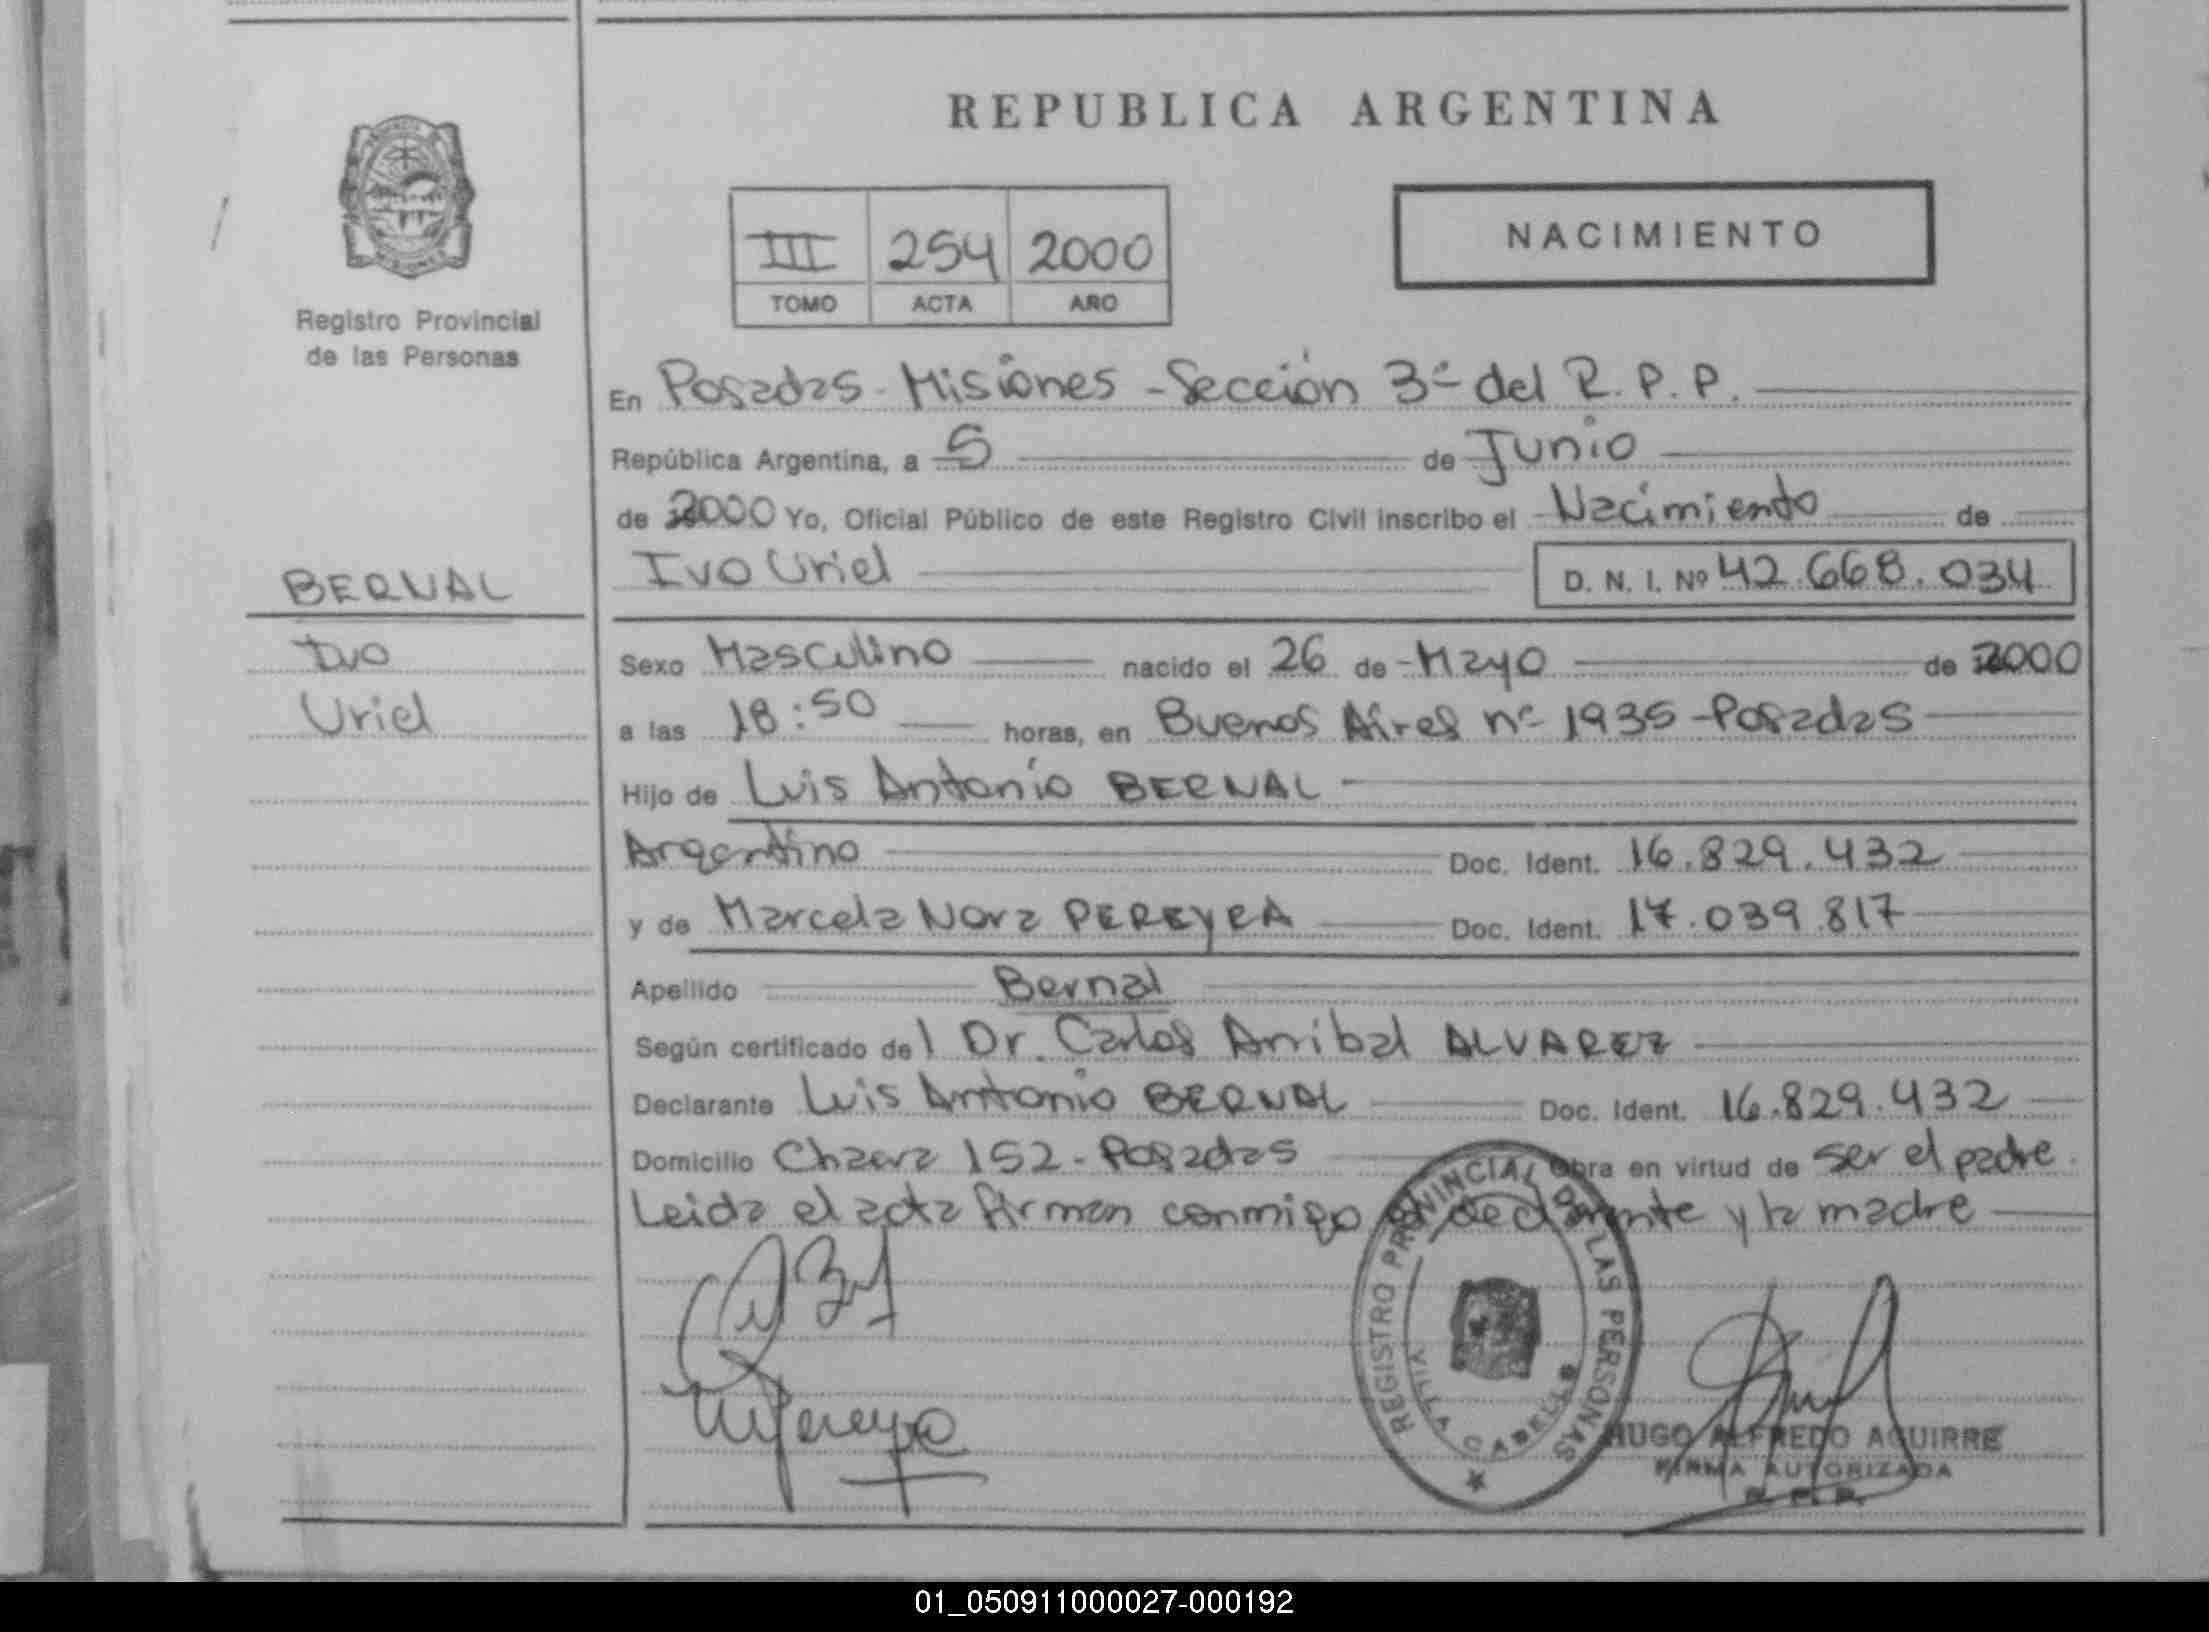 REPUBLICA ARGENTINA
NACIMIENTO
III 254 2000
TOMO ACTA AÑO
Registro Provincial
de las Personas
En Posadas - Misiones - Sección 3ª del R.P.P.
República Argentina, a 5 de Junio
de 2000 Yo, Oficial Público de este Registro Civil inscribo el Nacimiento de
Ivo Uriel D. N. I. Nº 42.668.034
BERNAL
Ivo
Uriel
Sexo Masculino nacido el 26 de Mayo de 2000
a las 18:50 horas, en Buenos Aires nº 1935 - Posadas
Hijo de Luis Antonio BERNAL
Argentino Doc. Ident. 16.829.432
y de Marcela Nora PEREYRA Doc. Ident. 17.039.817
Apellido Bernal
Según certificado del Dr. Carlos Anibal ALVAREZ
Declarante Luis Antonio BERNAL Doc. Ident. 16.829.432
Domicilio Chacra 152 - Posadas Obra en virtud de ser el padre.
Leida el acta firman conmigo el declarante y la madre
MPereyra
REGISTRO PROVINCIAL DE LAS PERSONAS
VILLA CABELLO
HUGO ALFREDO AGUIRRE
FIRMA AUTORIZADA
R. P. P.
01_050911000027-000192